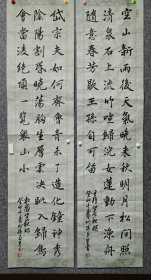 空山新雨後天氣晚来秋明月松間照
清泉石上流竹喧歸浣女蓮動下漁舟
隨意春芳歇王孫自可留
岱宗夫如何齊魯青未了造化鍾神秀
陰陽割昏曉蕩胸生層雲決眥入歸鳥
會當凌絕頂一覽衆山小